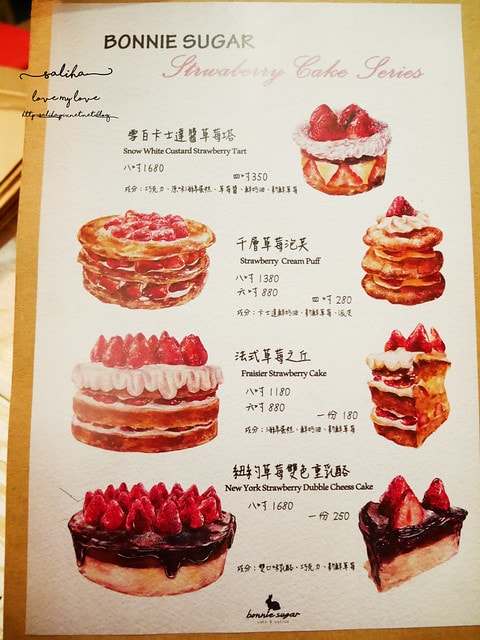 BONNIE SUGAR
Strwaberry Cake Series
saliha
love my love
雪白卡士達醬草莓塔
Snow White Custard Strawberry Tart
八吋1680
四吋350
成分:巧克力、原味海綿蛋糕、草莓醬、鮮奶油、新鮮草莓
千層草莓泡芙
Strawberry Cream Puff
八吋 1380
六吋 880
四吋 280
成分:卡士達鮮奶油、新鮮草莓、派皮
法式草莓之丘
Fraisier Strawberry Cake
八吋 1180
六吋 880
一份 180
成分:海綿蛋糕、鮮奶油、新鮮草莓
紐約草莓雙色重乳酪
New York Strawberry Dubble Cheess Cake
八吋 1680
一份 250
成分:雙口味乳酪、巧克力、新鮮草莓
bonnie sugar